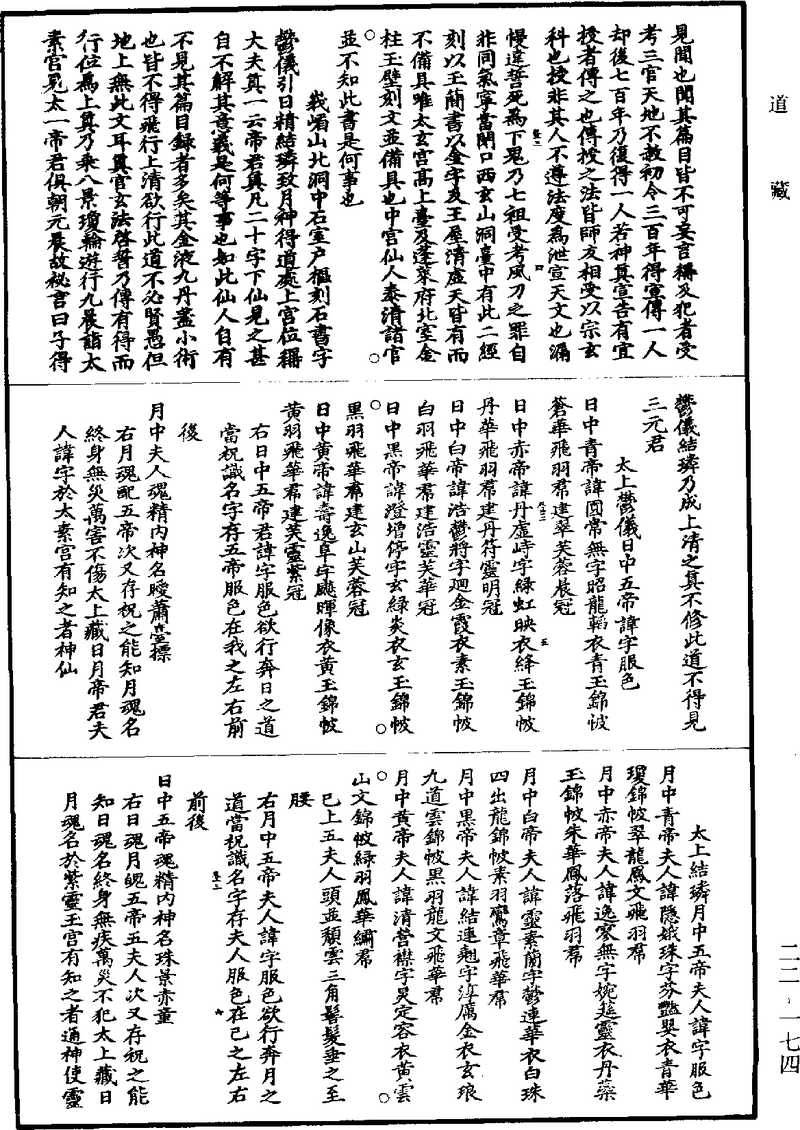 道藏
見聞也聞其篇目皆不可妄言稱及犯者受
考三官天地不赦初令三百年得宣傳一人
却後七百年乃復得一人若神真宣告有宜
授者傳之也傳授之法皆師友相受以宗玄
科也授非其人不遵法度為泄宣天文也漏
慢違誓死為下鬼乃七祖受考風刀之罪自
非同氣寧當閉口西玄山洞臺中有此二經
刻以玉簡書以金字及王屋清虛天皆有而
不備具唯太玄宮高上臺及蓬萊府北室金
柱玉壁刻文並備具也中宮仙人泰清諸官
並不知此書是何事也
峩嵋山北洞中石室户樞刻石書字
鬱儀引日精結璘致月神得道處上宮位稱
大夫真一云帝君真凡二十字下仙見之甚
自不解其意義是何等事也如此仙人自有
不見其篇目録者多矣其金液九丹盖小術
也皆不得飛行上清欲行此道不必賢愚但
地上無此文耳真官玄法啓誓乃傳有得而
行位為上真乃乘八景瓊輪遊行九晨詣太
素宮見太一帝君俱朝元晨故祕言曰子得
鬱儀結璘乃成上清之真不修此道不得見
三元君
太上鬱儀日中五帝諱字服色
日中青帝諱圓常無字昭龍韜衣青玉錦帔
蒼華飛羽羣建翠芙蓉晨冠
日中赤帝諱丹虛峙字綠虹映衣絳玉錦帔
丹華飛羽羣建丹符靈明冠
日中白帝諱浩鬱將字廻金霞衣素玉錦帔
白羽飛華羣建浩靈芙華冠
日中黑帝諱澄增停字玄綠炎衣玄玉錦帔
黑羽飛華羣建玄山芙蓉冠
日中黃帝諱壽逸阜字飈暉像衣黃玉錦帔
黃羽飛華羣建芙靈紫冠
右日中五帝君諱字服色欲行奔日之道
當祝識名字存五帝服色在我之左右前
後
月中夫人魂精內神名曖蕭臺摽
右月魂配五帝次又存祝之能知月魂名
終身無災萬害不傷太上藏日月帝君夫
人諱字於太素宮有知之者神仙
太上結璘月中五帝夫人諱字服色
月中青帝夫人諱隱娥珠字芬豔嬰衣青華
瓊錦帔翠龍鳳文飛羽帬
月中赤帝夫人諱逸寥無字婉筵靈衣丹蘂
玉錦帔朱華鳳落飛羽帬
月中白帝夫人諱靈素蘭字鬱連華衣白珠
四出龍錦帔素羽鸞章飛華帬
月中黑帝夫人諱結連翹字淳厲金衣玄琅
九道雲錦帔黑羽龍文飛華帬
月中黃帝夫人諱清營襟字炅定容衣黃雲
山文錦帔綠羽鳳華繡帬
已上五夫人頭並頹雲三角髻髮垂之至
腰
右月中五帝夫人諱字服色欲行奔月之
道當祝識名字存夫人服色在己之左右
前後
日中五帝魂精內神名珠景赤童
右日魂月魄五帝五夫人次又存祝之能
知日魂名終身無疾萬災不犯太上藏日
月魂名於紫靈玉宮有知之者通神使靈
二二・一七四